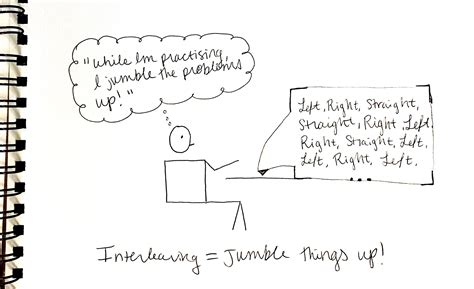 "while Im practising,
I jumble the problems
up!"
Left, Right, Straight,
Straight, Right, Left,
Right, Straight, Left,
Left, Right, Left.
Interleaving = Jumble things up!